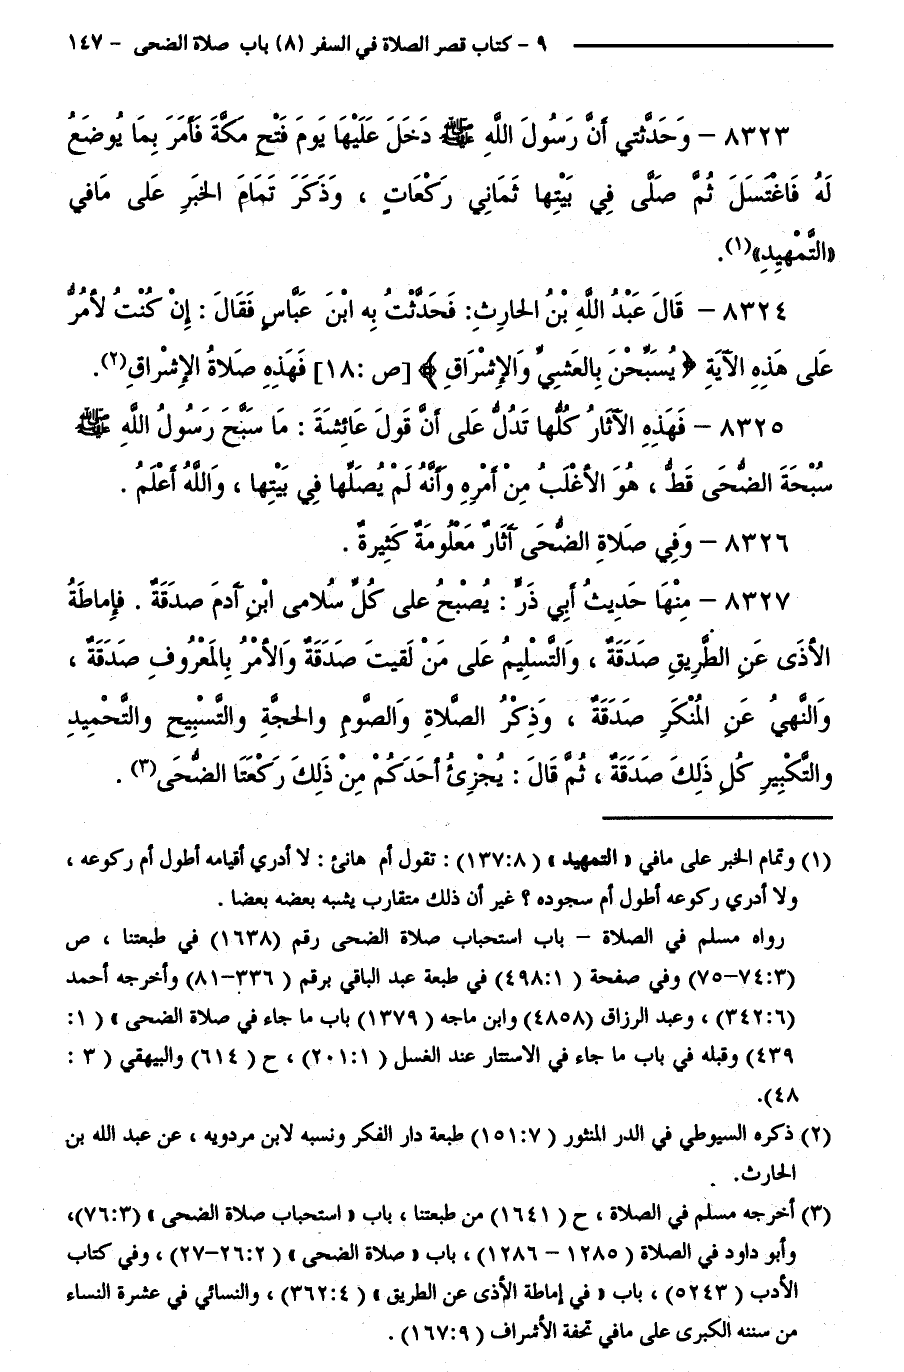 ٩ - كتاب قصر الصلاة في السفر (٨) باب صلاة الضحى - ١٤٧
٨٣٢٣ - وَحَدَّثَتنِي أَنَّ رَسُولَ اللَّهِ ﷺ دَخَلَ عَلَيْهَا يَومَ فَتْحِ مكَّةَ فَأَمَرَ بِمَا يُوضَعُ
لَهُ فَاغْتَسَلَ ثُمَّ صَلَّى فِي بَيْتِها ثَمَانِي رَكْعَاتٍ ، وَذَكَرَ تَمَامَ الخَبَرِ عَلى مَافي
«التَّمْهِيدِ»(١).
٨٣٢٤ - قَالَ عَبْدُ اللَّهِ بْنُ الحَارِثِ: فَحَدَّثْتُ بِه ابْنَ عَبَّاسٍ فَقَالَ : إِنْ كُنْتُ لأَمُرُّ
عَلى هَذِهِ الآيَةِ ﴿ يُسَبِّحْنَ بِالعَشيِّ وَالإِشْرَاقِ ﴾ [ص :١٨] فَهَذِهِ صَلاةُ الإِشْراقِ(٢).
٨٣٢٥ - فَهَذِهِ الآثَارُ كُلُّها تَدُلُّ عَلى أَنَّ قَولَ عَائِشَةَ : مَا سَبَّحَ رَسُولُ اللَّهِ ﷺ
سُبْحَةَ الضُّحَى قَطُّ ، هُوَ الأَغْلَبُ مِنْ أَمْرِهِ وَأَنَّهُ لَمْ يُصَلِّها فِي بَيْتِها ، وَاللَّهُ أَعْلَمُ .
٨٣٢٦ - وَفِي صَلاةِ الضُّحَى آثَارٌ مَعْلُومَةٌ كَثِيرةٌ .
٨٣٢٧ - مِنْهَا حَدِيثُ أَبِي ذَرٍّ : يُصْبحُ على كُلِّ سُلامى ابْنِ آدمَ صدَقَةٌ . فإِماطَةُ
الأَذَى عَنِ الطَّرِيقِ صَدَقَةٌ ، وَالتَّسْلِيمُ عَلى مَنْ لَقيتَ صَدَقَةٌ وَالأَمْرُ بِالمَعْرُوفِ صدَقَةٌ ،
وَالنَّهيُ عَنِ المُنْكَرِ صَدَقَةٌ ، وَذِكْرُ الصَّلاةِ وَالصَّومِ والحجَّةِ والتَّسْبِيحِ والتَّحْمِيدِ
والتَّكْبِيرِ كُلِ ذَلِكَ صدَقَةٌ ، ثُمَّ قَالَ : يُجْزِئُ أَحَدَكُمْ مِنْ ذَلِكَ رَكْعَتَا الضُّحَى(٣) .
(١) وتمام الخبر على مافي « التمهيد » (١٣٧:٨) : تقول أم هانئ : لا أدري أقيامه أطول أم ركوعه ،
ولا أدري ركوعه أطول أم سجوده ؟ غير أن ذلك متقارب يشبه بعضه بعضا .
رواه مسلم في الصلاة - باب استحباب صلاة الضحى رقم (١٦٣٨) في طبعتنا ، ص
(٧٤:٣-٧٥) وفي صفحة (٤٩٨:١) في طبعة عبد الباقي برقم (٣٣٦-٨١) وأخرجه أحمد
(٣٤٢:٦) ، وعبد الرزاق (٤٨٥٨) وابن ماجه (١٣٧٩) باب ما جاء في صلاة الضحى » (١:
٤٣٩) وقبله في باب ما جاء في الاستتار عند الغسل (٢٠١:١) ، ح (٦١٤) والبيهقي (٣ :
٤٨).
(٢) ذكره السيوطي في الدر المنثور (١٥١:٧) طبعة دار الفكر ونسبه لابن مردويه ، عن عبد الله بن
الحارث.
(٣) أخرجه مسلم في الصلاة ، ح (١٦٤١) من طبعتنا ، باب « استحباب صلاة الضحى » (٧٦:٣)،
وأبو داود في الصلاة (١٢٨٥ - ١٢٨٦) ، باب « صلاة الضحى » (٢٦:٢-٢٧) ، وفي كتاب
الأدب (٥٢٤٣) ، باب « في إماطة الأذى عن الطريق » (٣٦٢:٤) ، والنسائي في عشرة النساء
من سننه الكبرى على مافي تحفة الأشراف (١٦٧:٩) .